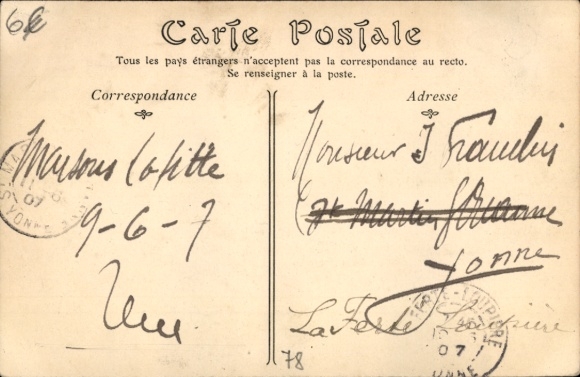 6
Carte Postale
Tous les pays étrangers n'acceptent pas la correspondance au recto.
Se renseigner à la poste.
Correspondance
Adresse
Maisons Lafitte
9-6-7
Monsieur J
St Martin s/ Ouanne
Yonne
La Ferté Loupière
YONNE
07
07
78